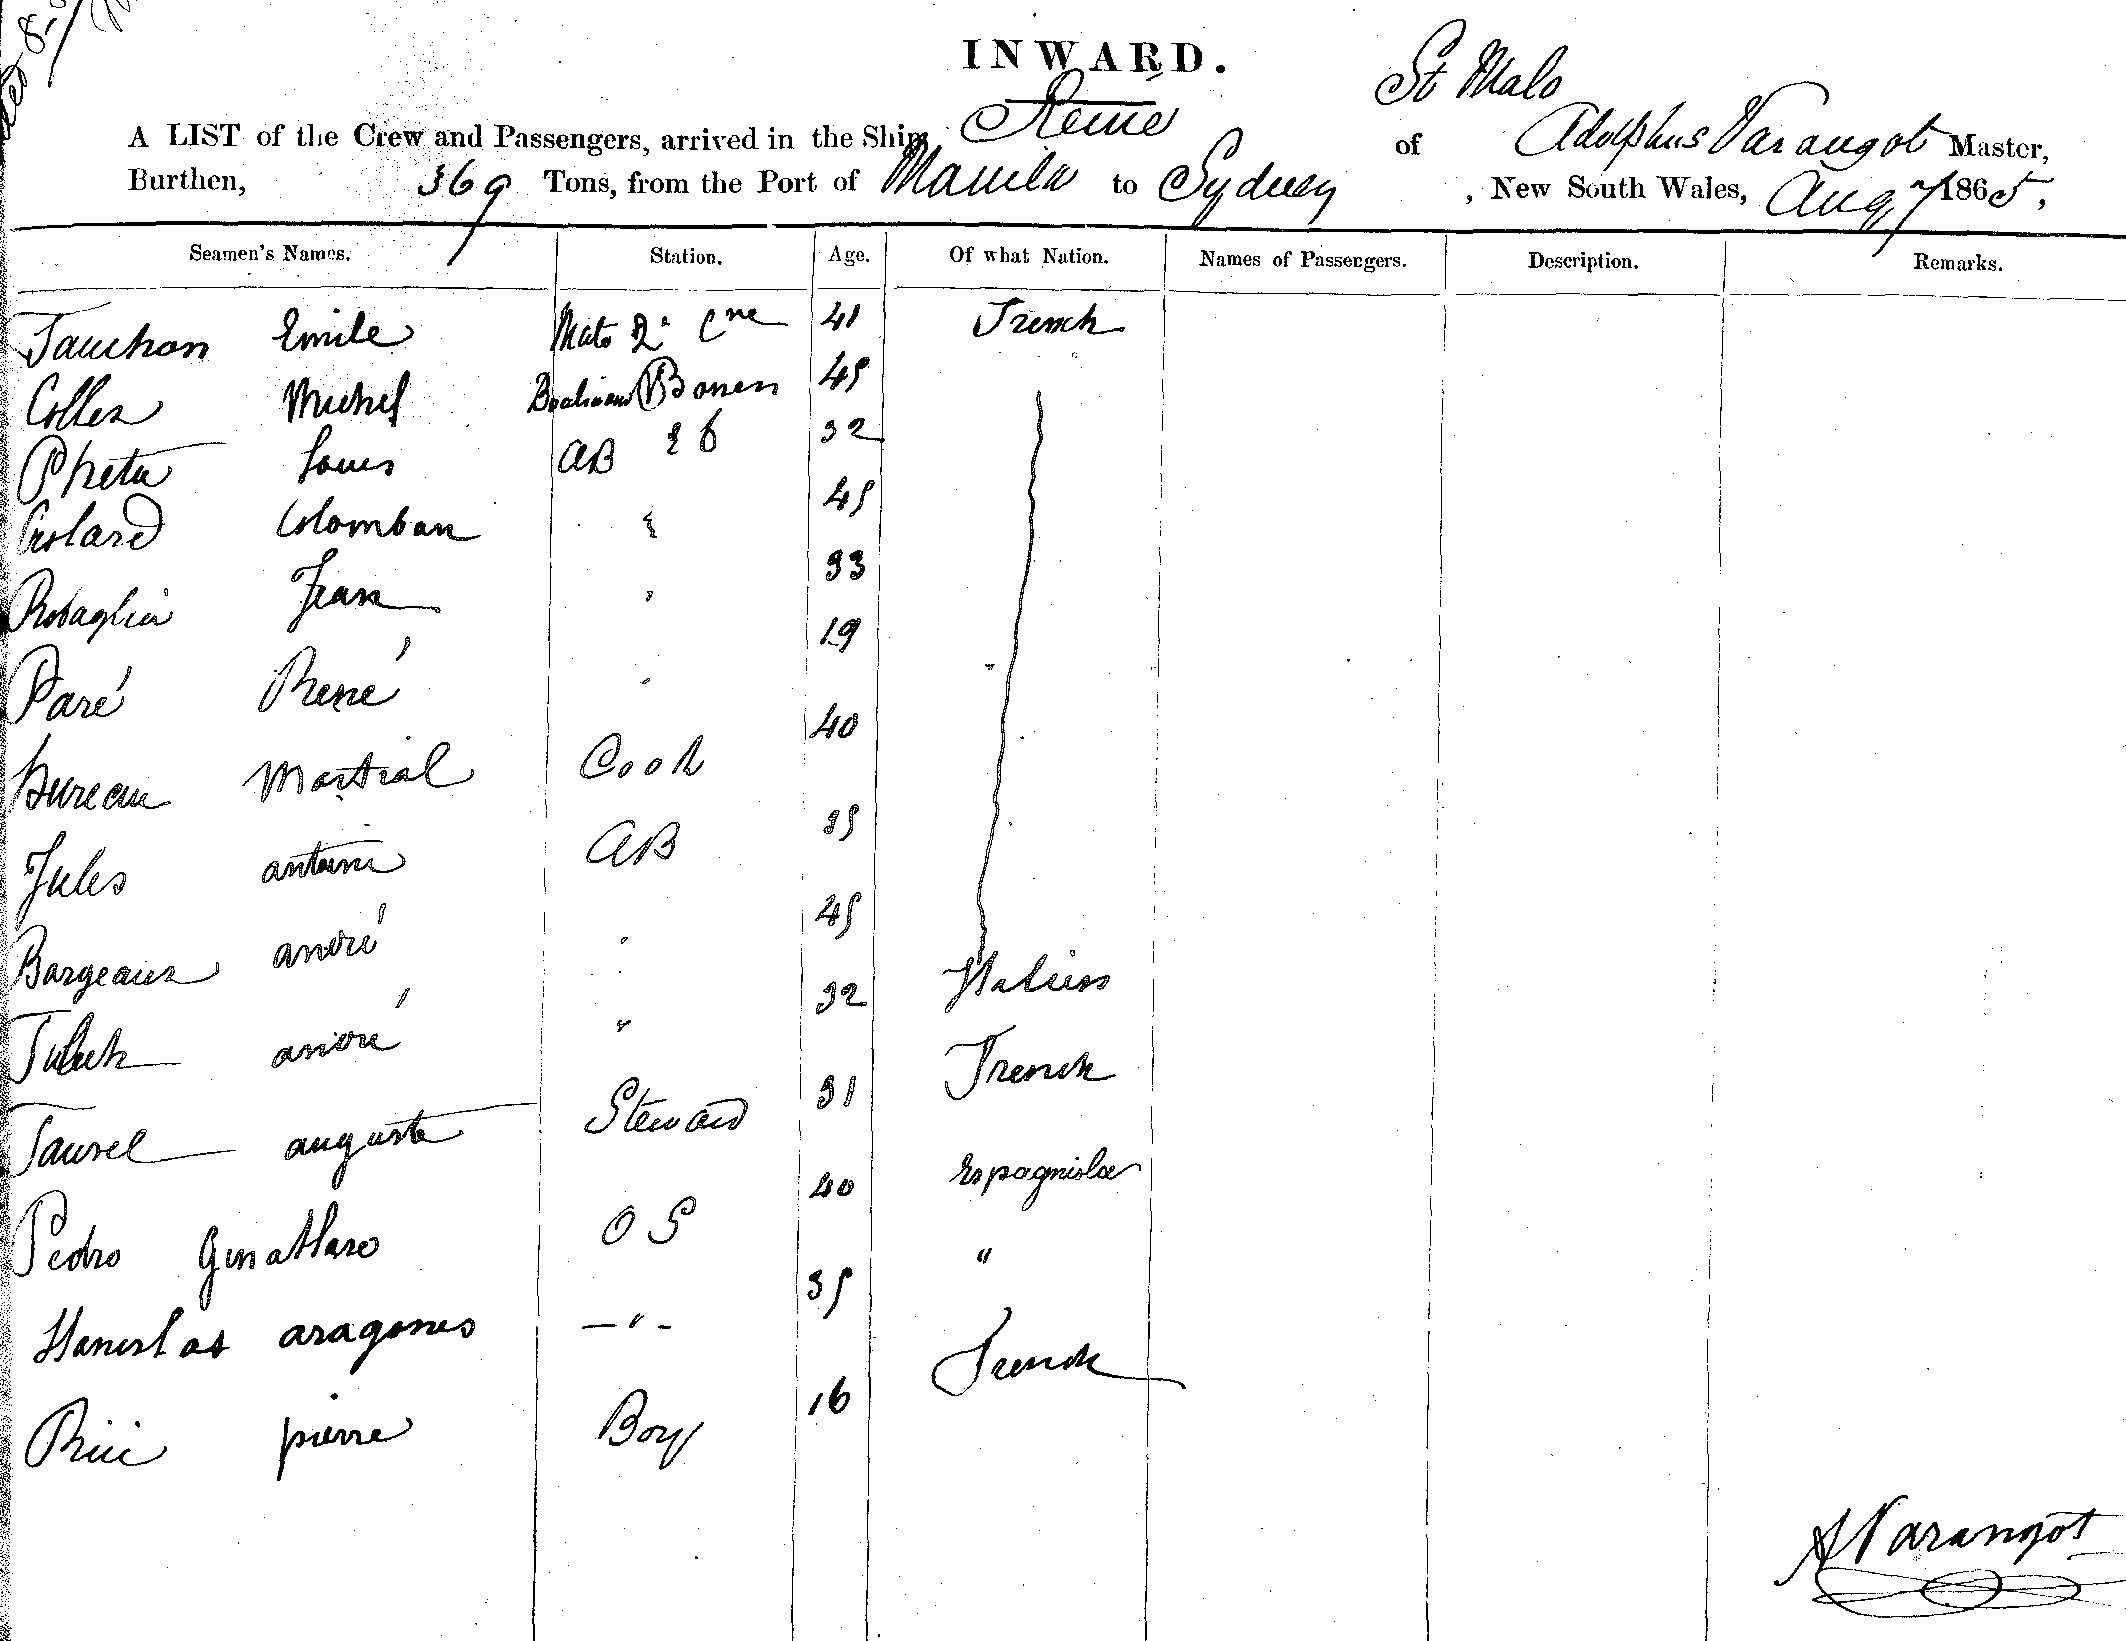 INWARD.
St Malo
A LIST of the Crew and Passengers, arrived in the Ship Reine of Adolphus Varangot Master,
Burthen, 369 Tons, from the Port of Manila to Sydney, New South Wales, Aug 7 1865.
Seamen's Names. Station. Age. Of what Nation. Names of Passengers. Description. Remarks.
Fauchon Emile Mate 41 French
Collen Michel 45
Louis AB 32
Crolard Colomban " 45
Robaglia Jean " 33
Paré René " 19
Bureau Martial Cook 40
Jules antoine AB 35
andré " 45 Italien
andré " 32 French
Taurel auguste Steward 31
Pedro O S 40 Espagnola
aragones — " — 35 "
pierre Boy 16 French
A Varangot